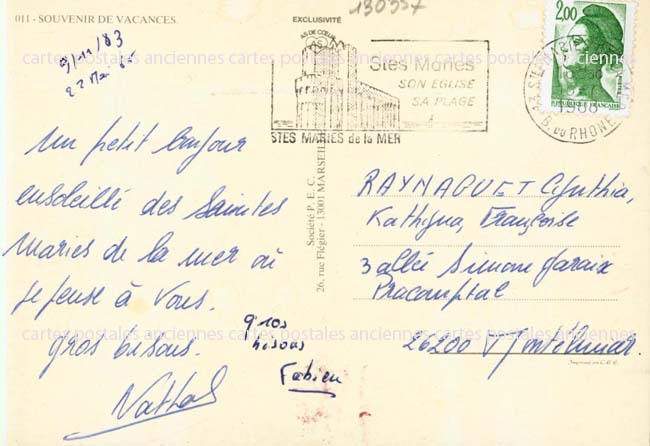 011 - SOUVENIR DE VACANCES.
EXCLUSIVITÉ
AS DE CŒUR
130957
9/11/83
22 Mai
Stes Maries
SON EGLISE
SA PLAGE
STES MARIES de la MER
2,00
REPUBLIQUE FRANÇAISE
1988
B. DU RHONE
cartes postales anciennes cartes postales anciennes cartes postales anciennes
Un petit bonjour
ensoleillé des Saintes
Maries de la mer où
je pense à Vous.
gros bisous.
Nathal
gros
bisous
Fabien
Société P.E.C.
26, rue Flégier - 13001 MARSEILLE
RAYNAGUET Cynthia,
Kathyna, Françoise
3 allée Simone
26200 Montélimar.
cartes postales anciennes cartes postales anciennes cartes postales anciennes